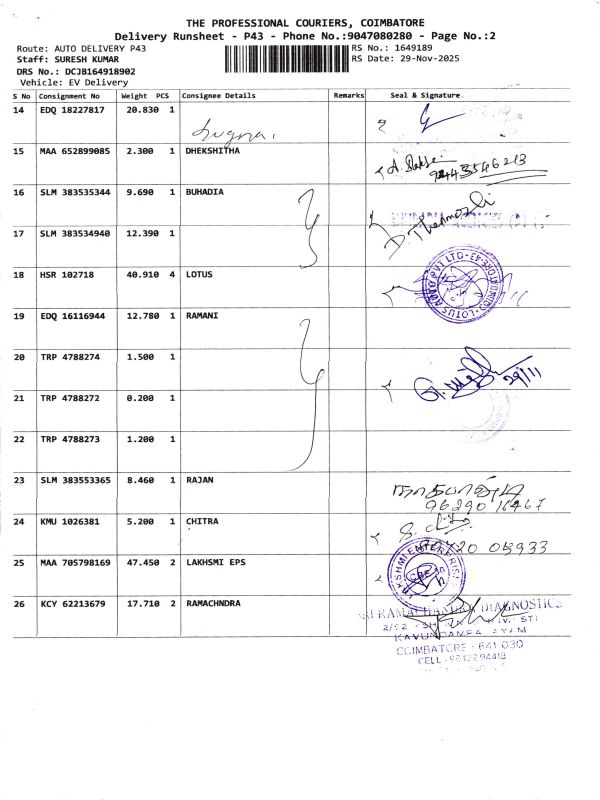 THE PROFESSIONAL COURIERS, COIMBATORE
Delivery Runsheet - P43 - Phone No.:9047080280 - Page No.:2
Route: AUTO DELIVERY P43
RS No.: 1649189
Staff: SURESH KUMAR
RS Date: 29-Nov-2025
DRS No.: DCJB164918902
Vehicle: EV Delivery
S No Consignment No Weight PCS Consignee Details Remarks Seal & Signature
14 EDQ 18227817 20.830 1
15 MAA 652899085 2.300 1 DHEKSHITHA
9443546213
16 SLM 383535344 9.690 1 BUHADIA
17 SLM 383534940 12.390 1
18 HSR 102718 40.910 4 LOTUS
19 EDQ 16116944 12.780 1 RAMANI
20 TRP 4788274 1.500 1
29/11
21 TRP 4788272 0.200 1
22 TRP 4788273 1.200 1
23 SLM 383553365 8.460 1 RAJAN
96290 16467
24 KMU 1026381 5.200 1 CHITRA
25 MAA 705798169 47.450 2 LAKHSMI EPS
26 KCY 62213679 17.710 2 RAMACHNDRA
SRI RAMACHANDRA DIAGNOSTICS
COIMBATORE - 641 030